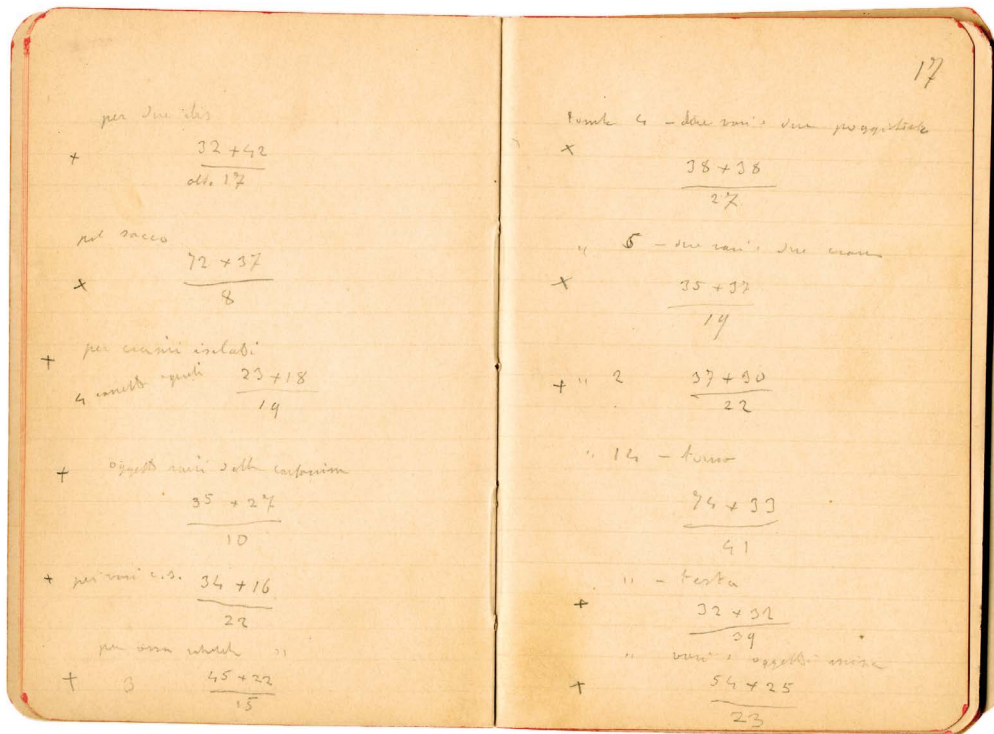 per due
+ 32 + 42
alt. 17
pel sacco
x 72 x 37
8
+ per crani isolati
4 23 + 18
19
+ oggetti varii della
35 + 27
10
+ per vari c.s. 34 + 16
22
per ossa "
+ 3 45 + 22
15
17
Tomba 4 - due vasi e due poggiateste
x 38 x 38
27
" 5 - due vasi e due
x 35 x 37
19
+ " 2 37 + 30
22
" 14 -
74 x 33
41
" - testa
+ 32 x 32
39
" vasi e oggetti
+ 54 + 25
23